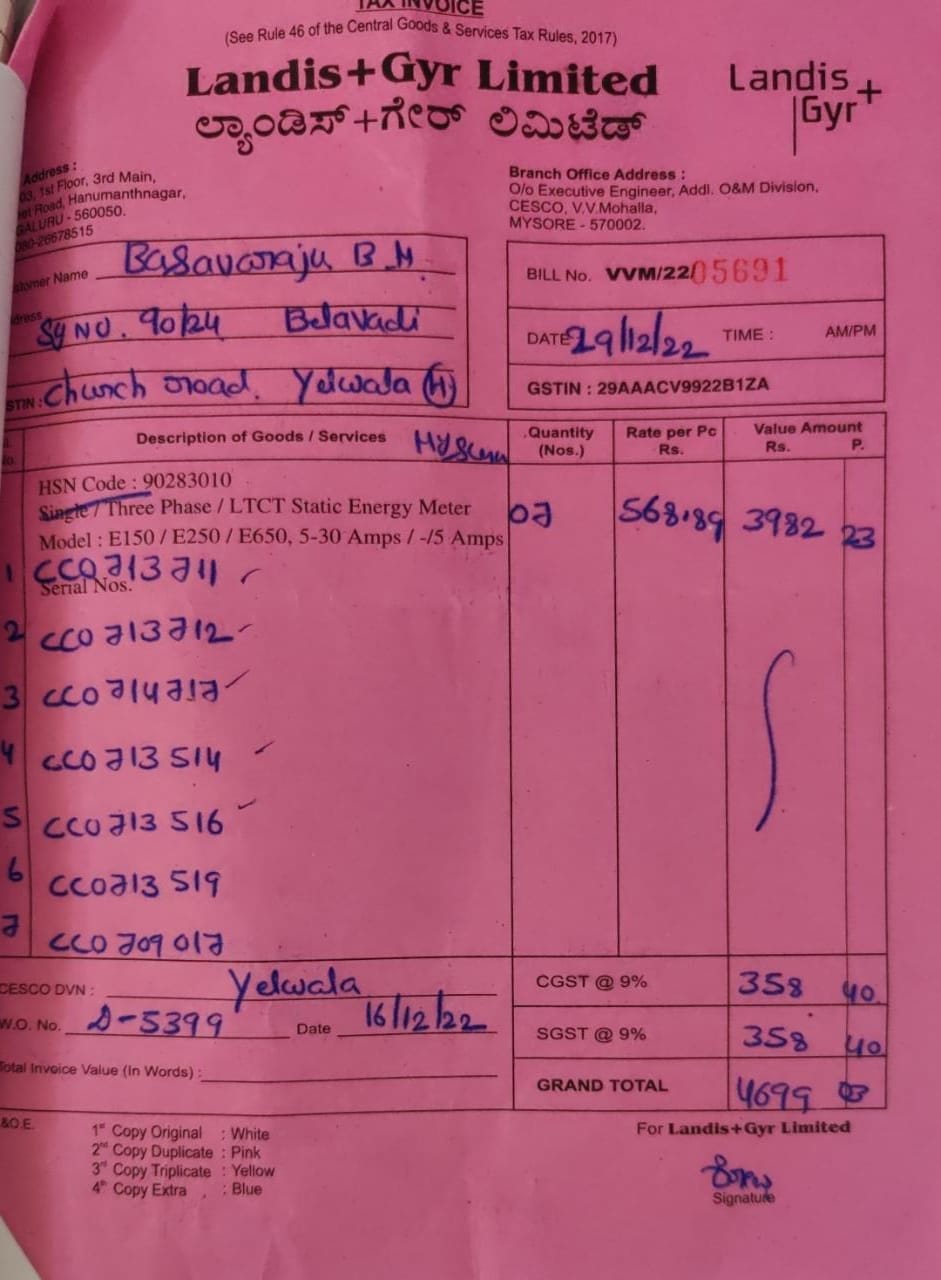 TAX INVOICE
(See Rule 46 of the Central Goods & Services Tax Rules, 2017)
Landis+Gyr Limited
ಲ್ಯಾಂಡಿಸ್+ಗೇರ್ ಲಿಮಿಟೆಡ್
Landis+
Gyr
Address :
03, 1st Floor, 3rd Main,
Road, Hanumanthnagar,
GALURU - 560050.
080-26678515
Branch Office Address :
O/o Executive Engineer, Addl. O&M Division,
CESCO, V.V.Mohalla,
MYSORE - 570002.
stomer Name Basavaraju B M.
dress Sy NO. 90/24 Belavadi
STIN : Church road. Yelwala (H)
BILL No. VVM/22/05691
DATE 29/12/22 TIME : AM/PM
GSTIN : 29AAACV9922B1ZA
No. Description of Goods / Services Quantity (Nos.) Rate per Pc Rs. Value Amount Rs. P.
HSN Code : 90283010
Single / Three Phase / LTCT Static Energy Meter 07 568.89 3982 23
Model : E150 / E250 / E650, 5-30 Amps / -/5 Amps
Serial Nos.
1 CC0713711
2 CC0713712
3 CC0714717
4 CC0713514
5 CC0713516
6 CC0713519
7 CC0709017
CESCO DVN : Yelwala
W.O. No. D-5399 Date 16/12/22
Total Invoice Value (In Words) :
CGST @ 9% 358 40
SGST @ 9% 358 40
GRAND TOTAL 4699 03
&O.E.
1st Copy Original : White
2nd Copy Duplicate : Pink
3rd Copy Triplicate : Yellow
4th Copy Extra : Blue
For Landis+Gyr Limited
Signature